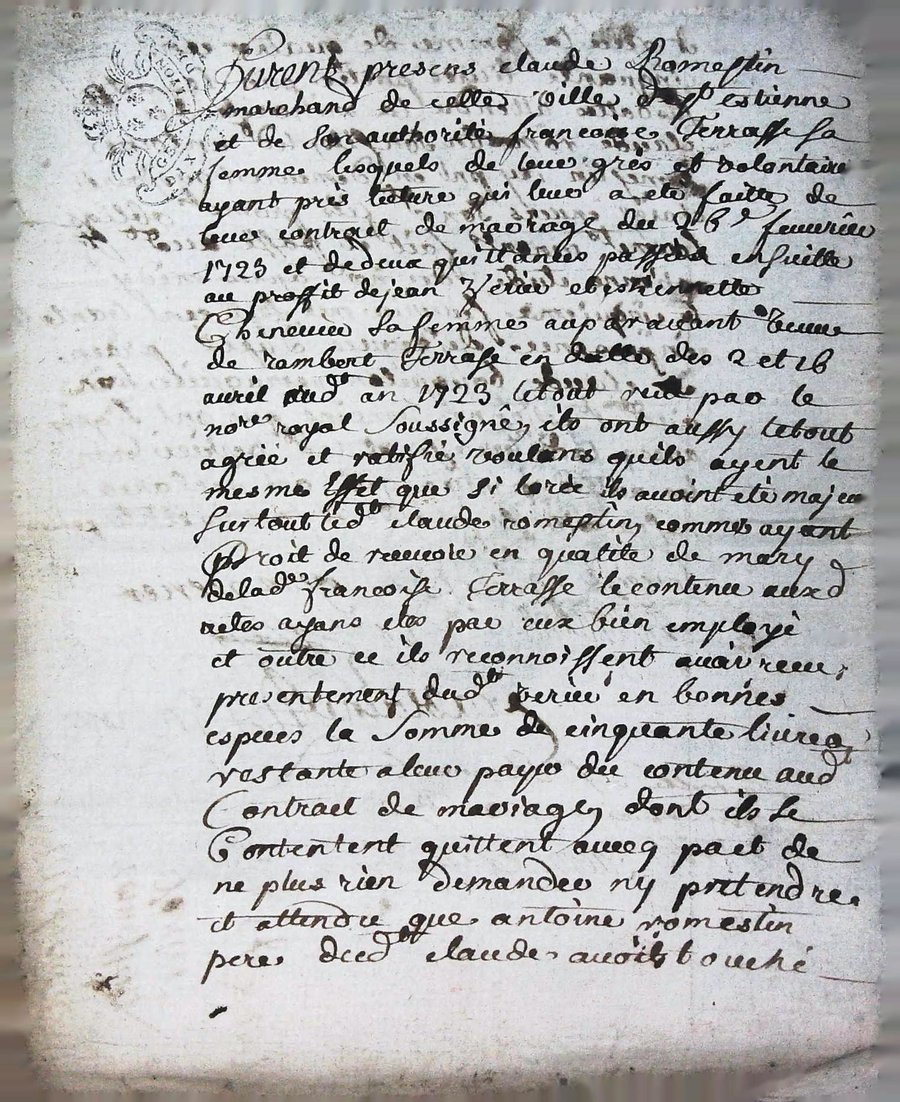 furent presens claude Romestin
marchand de cette ville de st estienne
et de son authorité francoise Terrasse sa
femme lesquels de leur grés et volontaire
ayant prés lecture qui leur a eté faitte de
leur contrat de mariage du 26e feuurier
1723 et de deux quittances passées ensuitte
au proffit de jean Verier et estiennette
Cheneuier sa femme auparauant veuue
de rambert Terrasse en datte des 2 et 16
auril aud an 1723 letout par le
nore royal soussigné, ils ont aussy letout
agréé et ratifié voulans quils ayent le
mesme Effet que si lorce ils auoint eté majeu
surtout led claude romestin comme ayant
Droit de receuoir en qualité de mary
delade francoise Terrasse le contenu auxd
actes ayans etes par eux bien employé
et outre ce ils reconnoissent auoir receu
presentement dud verier en bonnes
especes la somme de cinquante liures
restante aleur payer du contenu aud
Contrat de mariage, dont ils se
Contentent quittent auecq pact de
ne plus rien demander ny pretendre
et attendu que antoine romestin
pere dud claude auoit touché